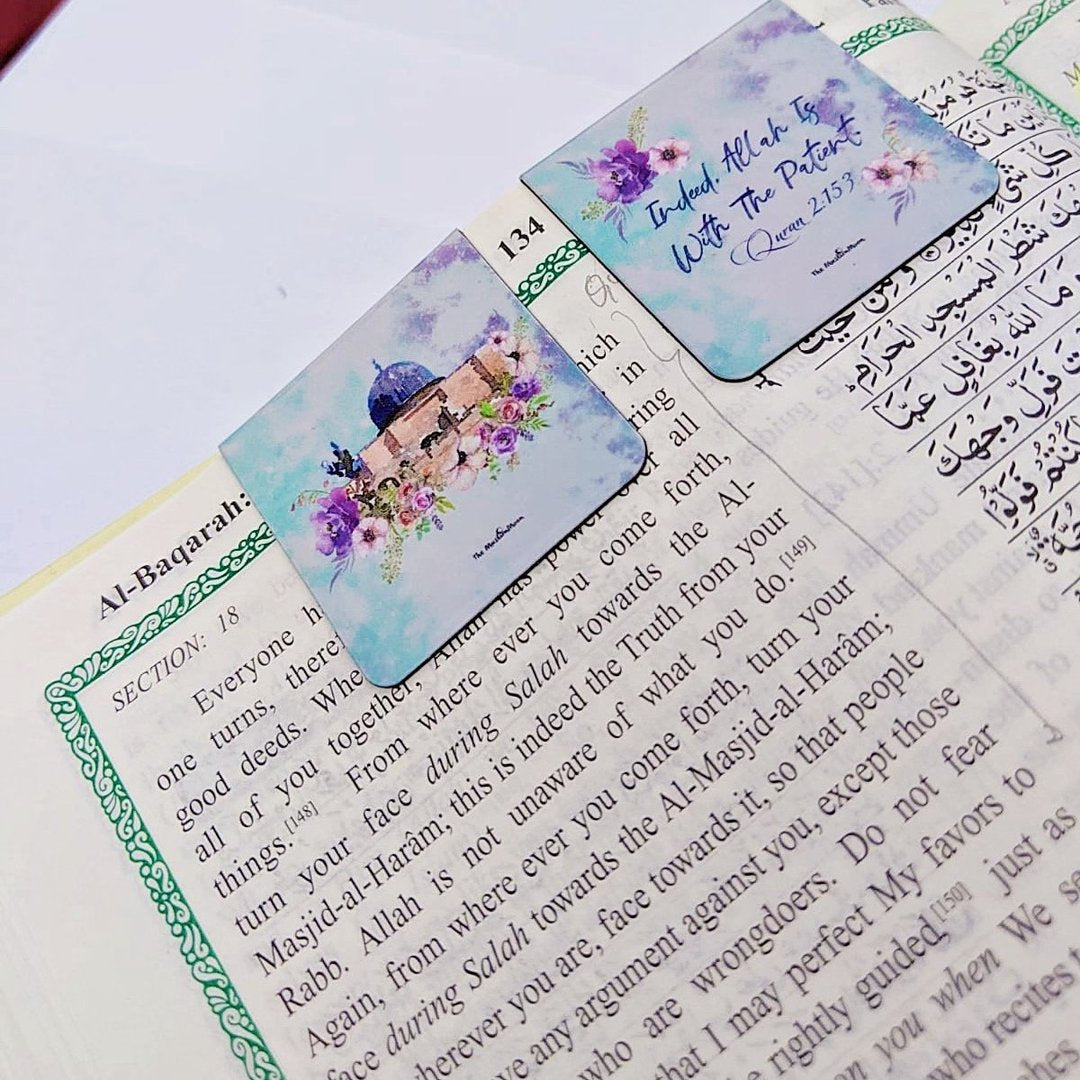 134
Al-Baqarah:
SECTION: 18
Indeed, Allah Is
With The Patient.
Quran 2:153
The MuslimMum
The MuslimMum
Everyone
hich
one turns, there
in
good deeds. Whe
ring
all of you together, Allah has power over all
things.[148] From where ever you come forth,
turn your face during Salah towards the Al-
Masjid-al-Harâm; this is indeed the Truth from your
Rabb. Allah is not unaware of what you do.[149]
Again, from where ever you come forth, turn your
face during Salah towards the Al-Masjid-al-Harâm;
wherever you are, face towards it, so that people
ve any argument against you, except those
who are wrongdoers. Do not fear
that I may perfect My favors to
rightly guided,[150] just as
you when We se
who recites t
شَطْرَ الْمَسْجِدِ الْحَرَامِ
وَمِنْ حَيْثُ
مَا اللّٰهُ بِغَافِلٍ عَمَّا
فَوَلِّ وَجْهَكَ
كُنْتُمْ فَوَلُّوْا